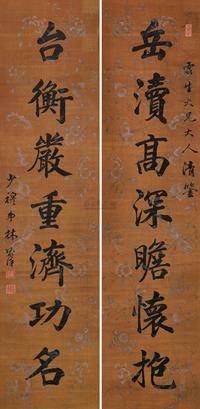 雲生大兄大人清鑒
岳瀆高深瞻懷抱
台衡嚴重濟功名
少穆弟林則徐